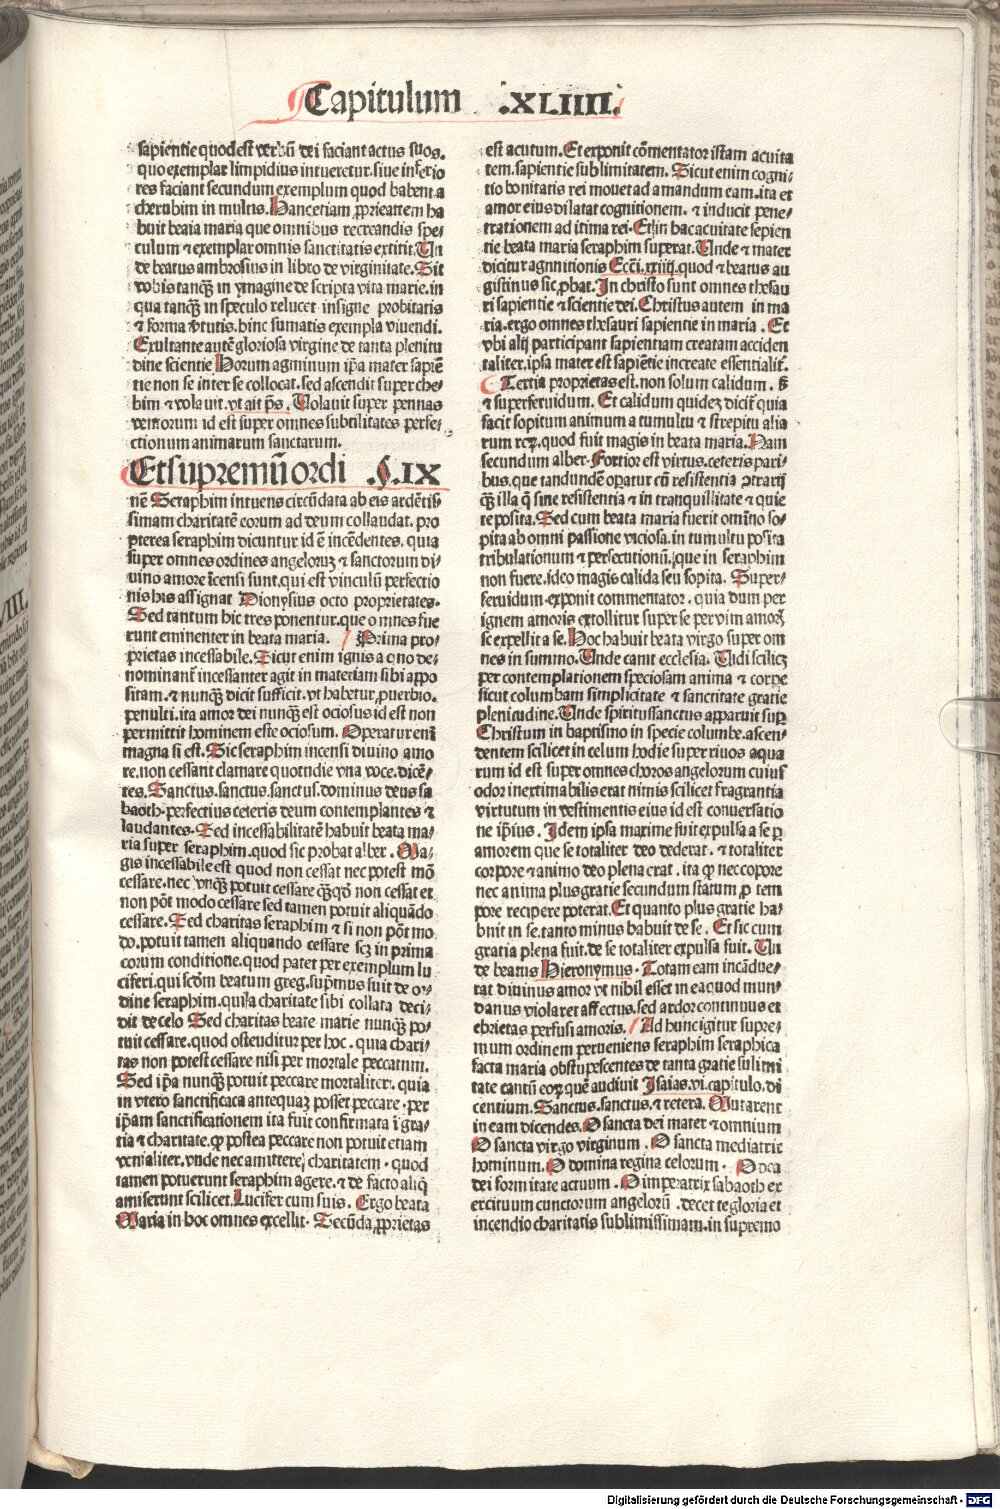 Capitulum .XLIIII.
sapientie quod est verbū dei faciant actus suos.
quo exemplar limpidius intueretur. siue inferio
res faciant secundum exemplum quod habent a
cherubim in multis. Hanc etiam ꝓprieattem ha
buit beata maria que omnibus recreandis spe⸗
culum ⁊ exemplar omnis sanctitatis extitit. Un
de beatus ambrosius in libro de virginitate. Sit
vobis tanqȝ in ymagine descripta vita marie. in
qua tanqȝ in speculo relucet insigne probitatis
⁊ forma v̄tutis. hinc sumatis exempla viuendi.
Exultante autē gloriosa virgine de tanta plenitu
dine scientie Horum agminum ip̄a mater sapiē
tie non se inter se collocat. sed ascendit super che⸗
bim ⁊ volauit. vt ait p̄s. Uolauit super pennas
ventorum id est super omnes subtilitates perfe⸗
ctionum animarum sanctarum.
Et supremū ordi .§.IX
nē Seraphim intuens circūdata ab eis ardētis
simam charitatē eorum ad deum collaudat. pro
pterea seraphim dicuntur id ē incēdentes. quia
super omnes ordines angeloꝝ ⁊ sanctorum di⸗
uino amore īcensi sunt. qui est vinculū perfectio
nis his assignat Dionysius octo proprietates.
Sed tantum hic tres ponentur. que omnes fue
runt eminenter in beata maria. Prima pro⸗
prietas incessabile. Sicut enim ignis a quo de⸗
nominant̄ incessanter agit in materiam sibi appo
sitam. ⁊ nunqȝ dicit sufficit. vt habetur ꝓuerbio.
penulti. ita amor dei nunqȝ est ociosus id est non
permittit hominem esse ociosum. Operatur enī
magna si est. Sic seraphim incensi diuino amo
re. non cessant clamare quotidie vna voce. dicē⸗
tes. Sanctus. sanctus. sanctus. dominus deus sa
baoth. perfectius ceteris deum contemplantes ⁊
laudantes. Sed incessabilitatē habuit beata ma⸗
ria super seraphim. quod sic probat alber. Ma⸗
gis incessabile est quod non cessat nec potest mō
cessare. nec vnqȝ potuit cessare qȝqd̄ non cessat et
non pōt modo cessare sed tamen potuit aliquādo
cessare. Sed charitas seraphim ⁊ si non pōt mo
do. potuit tamen aliquando cessare scȝ in prima
eorum conditione. quod patet per exemplum lu
ciferi. qui scd̄m beatum greg. sup̄mus fuit de or⸗
dine seraphim. qui a charitate sibi collata deci⸗
dit de celo Sed charitas beate marie nunqȝ po⸗
tuit cessare. quod ostenditur per hoc. quia chari⸗
tas non potest cessare nisi per mortale peccatum.
Sed ip̄a nunqȝ potuit peccare mortaliter. quia
in vtero sanctificata antequaȝ posset peccare. per
ip̄am sanctificationem ita fuit confirmata ī gra⸗
tia ⁊ charitate. ꝙ postea peccare non potuit etiam
venialiter. vnde nec amittere charitatem. quod
tamen potuerunt seraphim agere. ⁊ de facto aliq̄
amiserunt scilicet Lucifer cum suis. Ergo beata
Maria in hoc omnes excellit. Secūda ꝓprietas
est acutum. Et exponit cōmentator istam acuita
tem. sapientie sublimitatem. Sicut enim cogni⸗
tio bonitatis rei mouet ad amandum eam. ita et
amor eius dilatat cognitionem. ⁊ inducit pene⸗
trationem ad ītima rei. Et in hac acuitate sepien
tie beata maria seraphim superat. Unde ⁊ mater
dicitur agnitionis Ecci. xxiiij. quod ⁊ beatus au
gistinus sic ꝓbat. In christo sunt omnes thesau
ri sapientie ⁊ scientie dei. Christus autem in ma
ria. ergo omnes thesauri sapientie in maria. Et
vbi alij participant sapientiam creatam acciden
taliter. ipsa mater est sapiētie increate essentialit̄.
Tertia proprietas est. non solum calidum. s̄
⁊ superferuidum. Et calidum quideȝ dicit̄ quia
facit sopitum animum a tumultu ⁊ strepitu alia
rum reꝝ. quod fuit magis in beata maria. Nam
secundum alber. Fortior est virtus. ceteris pari⸗
bus. que tandundē operatur cū resistentia ꝯtrarij
qȝ illa q̄ sine resistentia ⁊ in tranquillitate ⁊ quie
te posita. Sed cum beata maria fuerit omīno so⸗
pita ab omni passione viciosa. in tumultu posita
tribulationum ⁊ persecutionū. que in seraphim
non fuere. ideo magis calida seu sopita. Super⸗
feruidum. exponit commentator. quia dum per
ignem amoris extollitur super se per vim amoꝝ
se expellit a se. Hoc habuit beata virgo super om
nes in summo. Unde canit ecclesia. Uidi scilicȝ
per contemplationem speciosam anima ⁊ corꝑe
sicut columbam simplicitate ⁊ sanctitate gratie
plenitudine. Unde spiritussanctus apparuit suꝑ
Christum in baptismo in specie columbe. ascen⸗
dentem scilicet in celum hodie super riuos aqua
rum id est super omnes choros angelorum cuius
odor inextimabilis erat nimis scilicet fragrantia
virtutum in vestimentis eius id est conuersatio
ne ip̄ius. Idem ipsa maxime fuit expulsa a se ꝑ
amorem que se totaliter deo dederat. ⁊ totaliter
corpore ⁊ animo deo plena erat. ita ꝙ nec copore
nec anima plus gratie secundum statum ꝓ tem
pore recipere poterat. Et quanto plus gratie ha⸗
bnit in se. tanto minus habuit de se. Et sic cum
gratia plena fuit. de se totaliter expulsa fuit. Un
de beatus Hieronymus. Totam eam incādue⸗
rat diuinus amor vt nihil esset in ea quod mun⸗
danus violaret affectus. sed ardor continuus et
ebrietas perfusi amoris. Ad hunc igitur supre⸗
mum ordinem perueniens seraphim seraphica
facta maria obstupescentes de tanta gratie sulimi
tate cantū eoꝝ quē audiuit Isaias. vi. capitulo. di
centium. Sanctus. sanctus. ⁊ cetera. Mutarent
in eam dicendes. O sancta dei mater ⁊ omnium
O sancta virgo virginum. O sancta mediatrix
hominum. O domina regina celorum. O dea
dei formitate actuum. O imperatrix sabaoth ex
ercituum cunctorum angelorū. decet te gloria et
incendio charitatis sublimissimam. in supremo
Digitalisierung gefördert durch die Deutsche Forschungsgemeinschaft - DFG